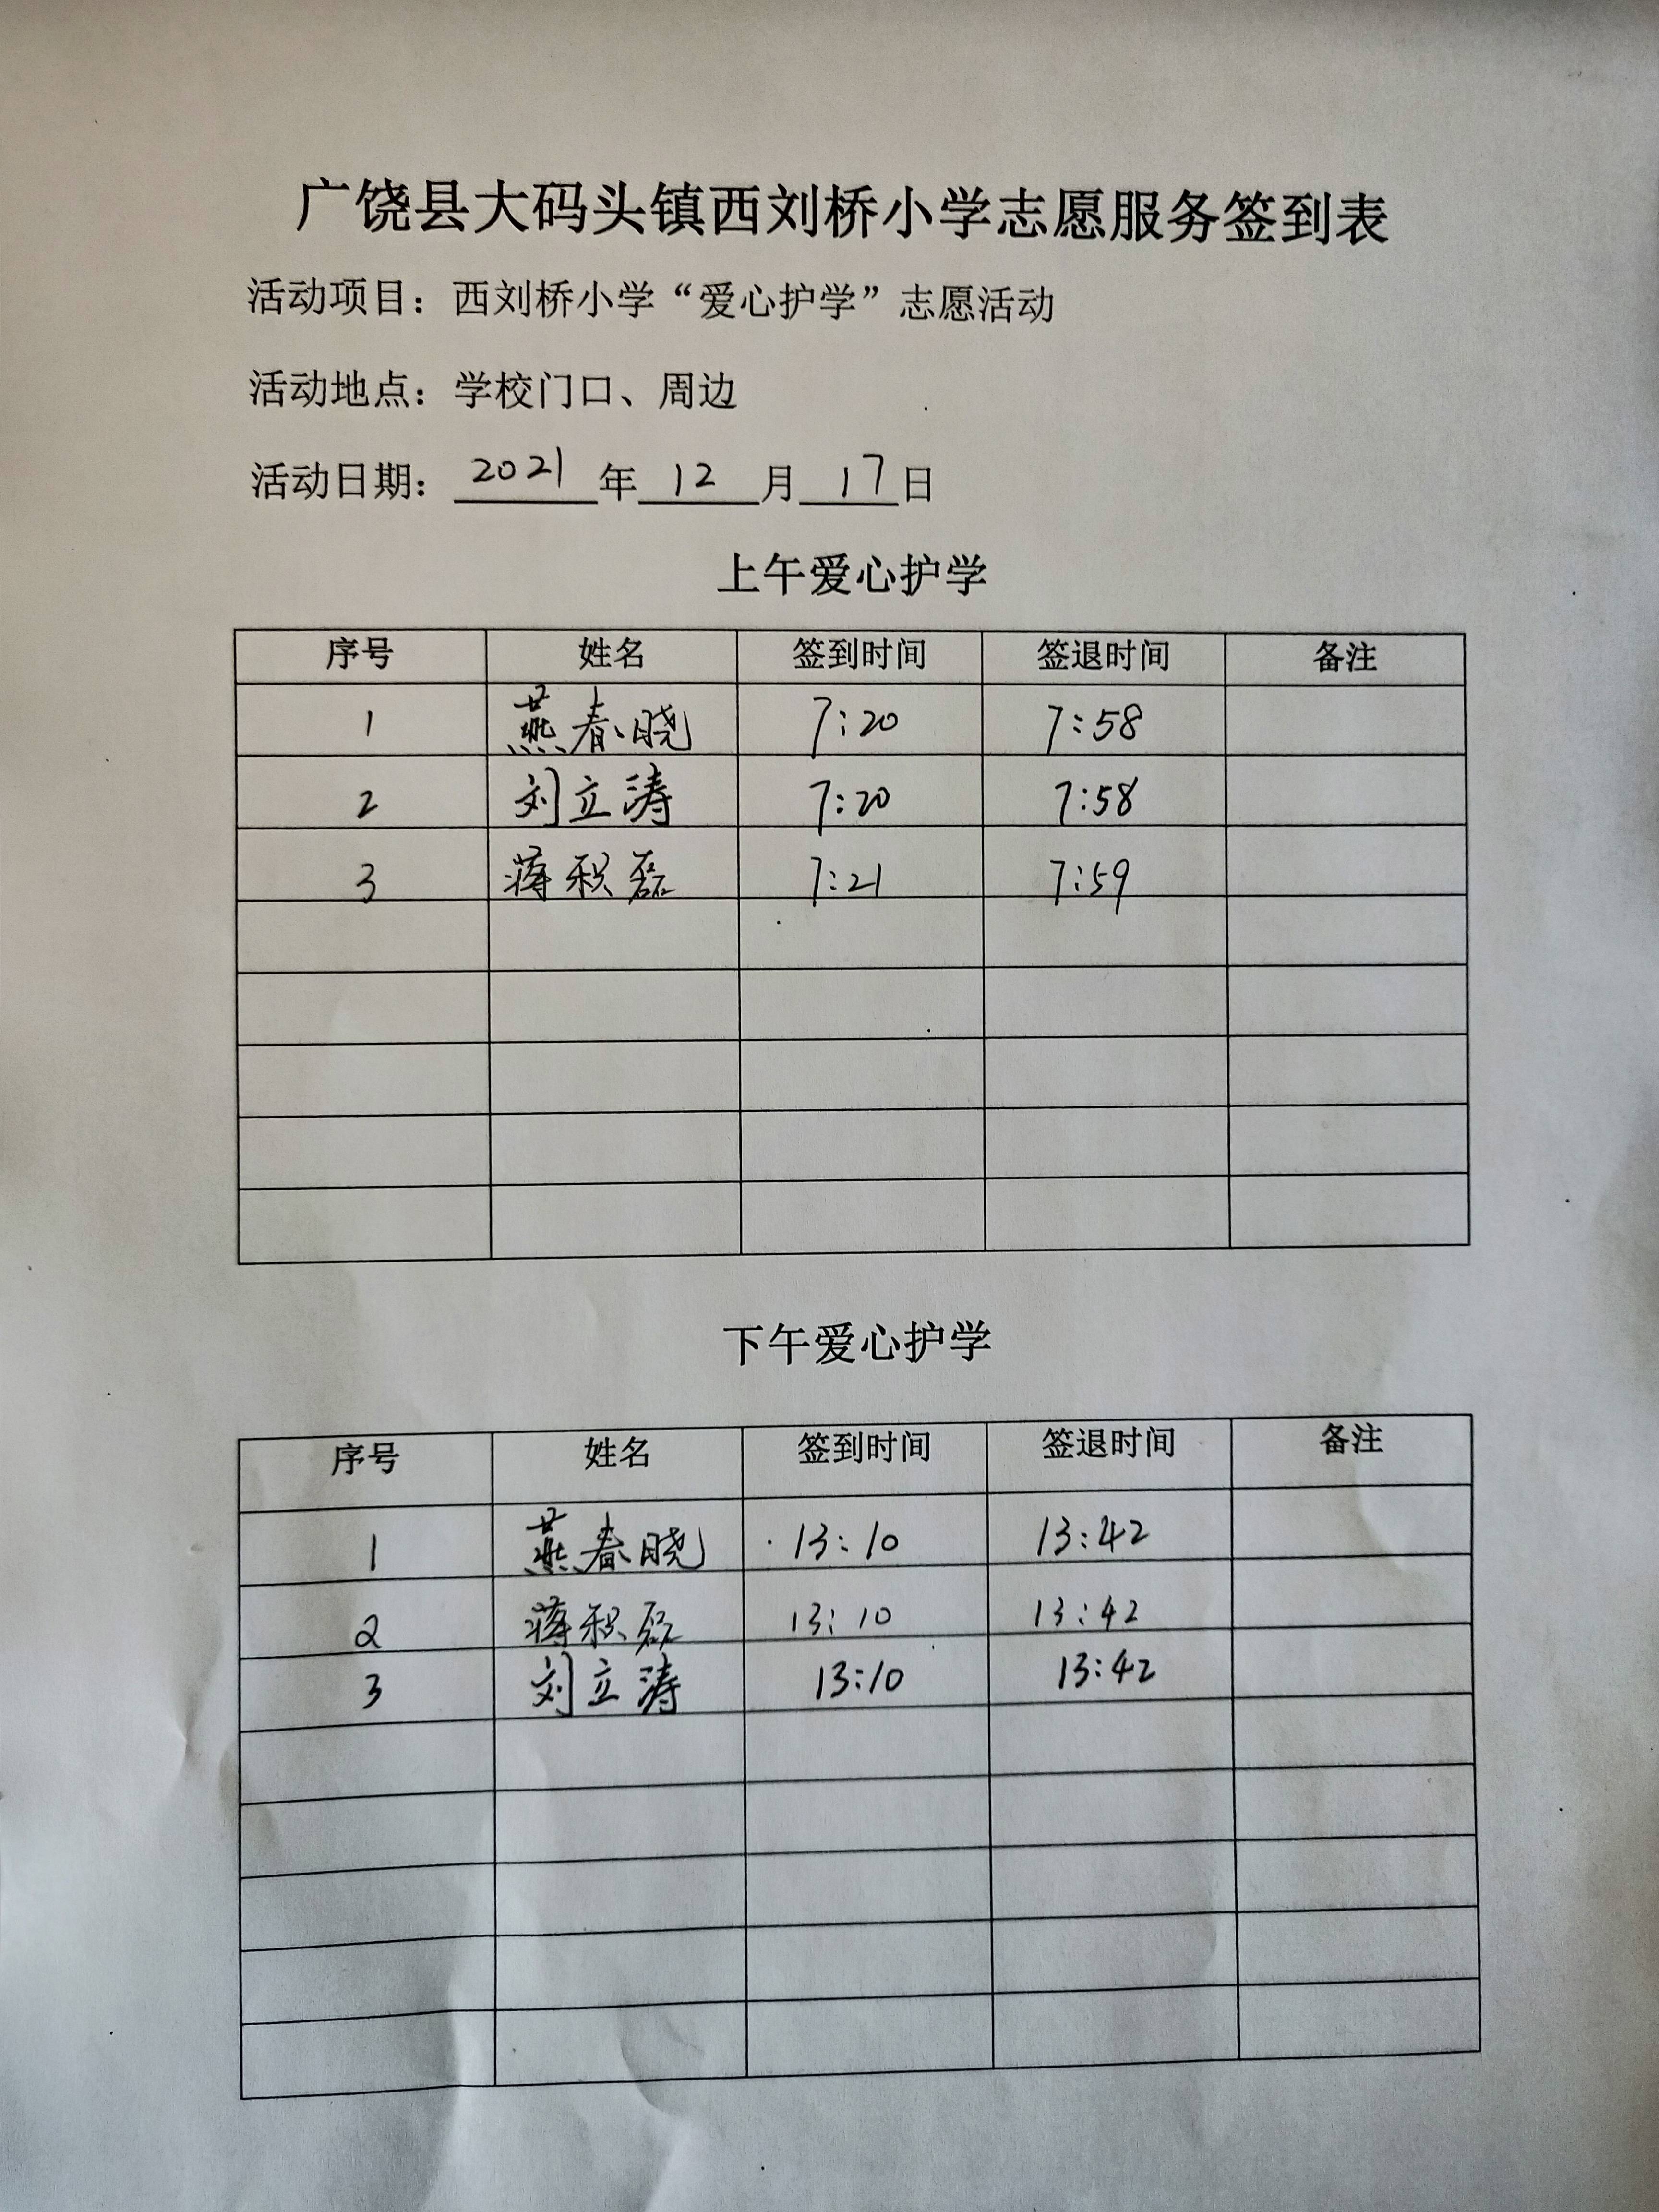 广饶县大码头镇西刘桥小学志愿服务签到表
活动项目：西刘桥小学“爱心护学”志愿活动
活动地点：学校门口、周边
活动日期：2021年12月17日
上午爱心护学
序号 姓名 签到时间 签退时间 备注
1 燕春晓 7:20 7:58
2 刘立涛 7:20 7:58
3 蒋积磊 7:21 7:59
下午爱心护学
序号 姓名 签到时间 签退时间 备注
1 燕春晓 13:10 13:42
2 蒋积磊 13:10 13:42
3 刘立涛 13:10 13:42